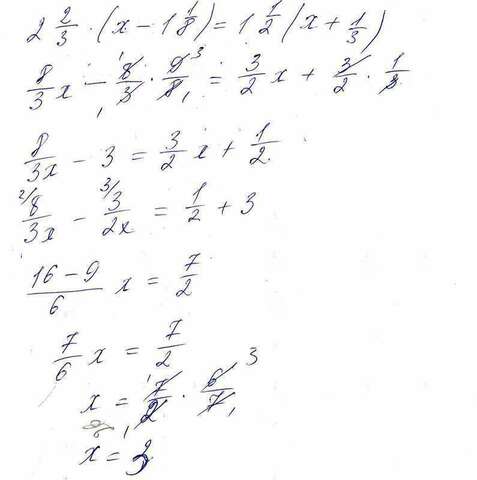 2 2/3 · (x − 1 1/8) = 1 1/2 (x + 1/3)
8/3 x − 8/3 · 9/8 = 3/2 x + 3/2 · 1/3
8/3x − 3 = 3/2 x + 1/2
8/3x − 3/2x = 1/2 + 3
16 − 9/6 x = 7/2
7/6 x = 7/2
x = 7/2 · 6/7
x = 3